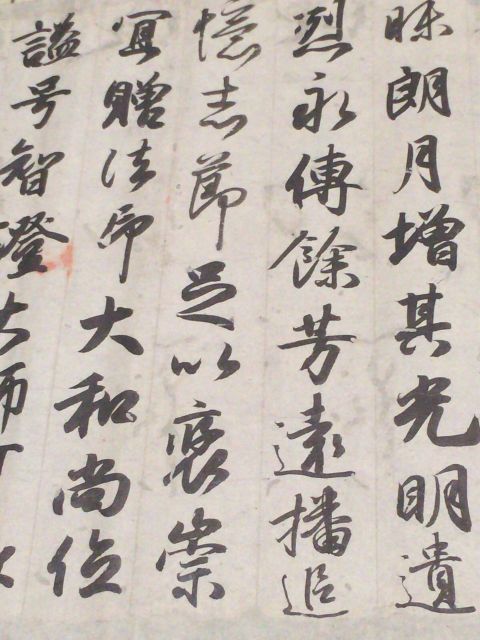 昧朗月增其光明遺
烈永傳餘芳遠播追
憶志節足以褒崇
冝贈法印大和尚位
謚号智澄大師